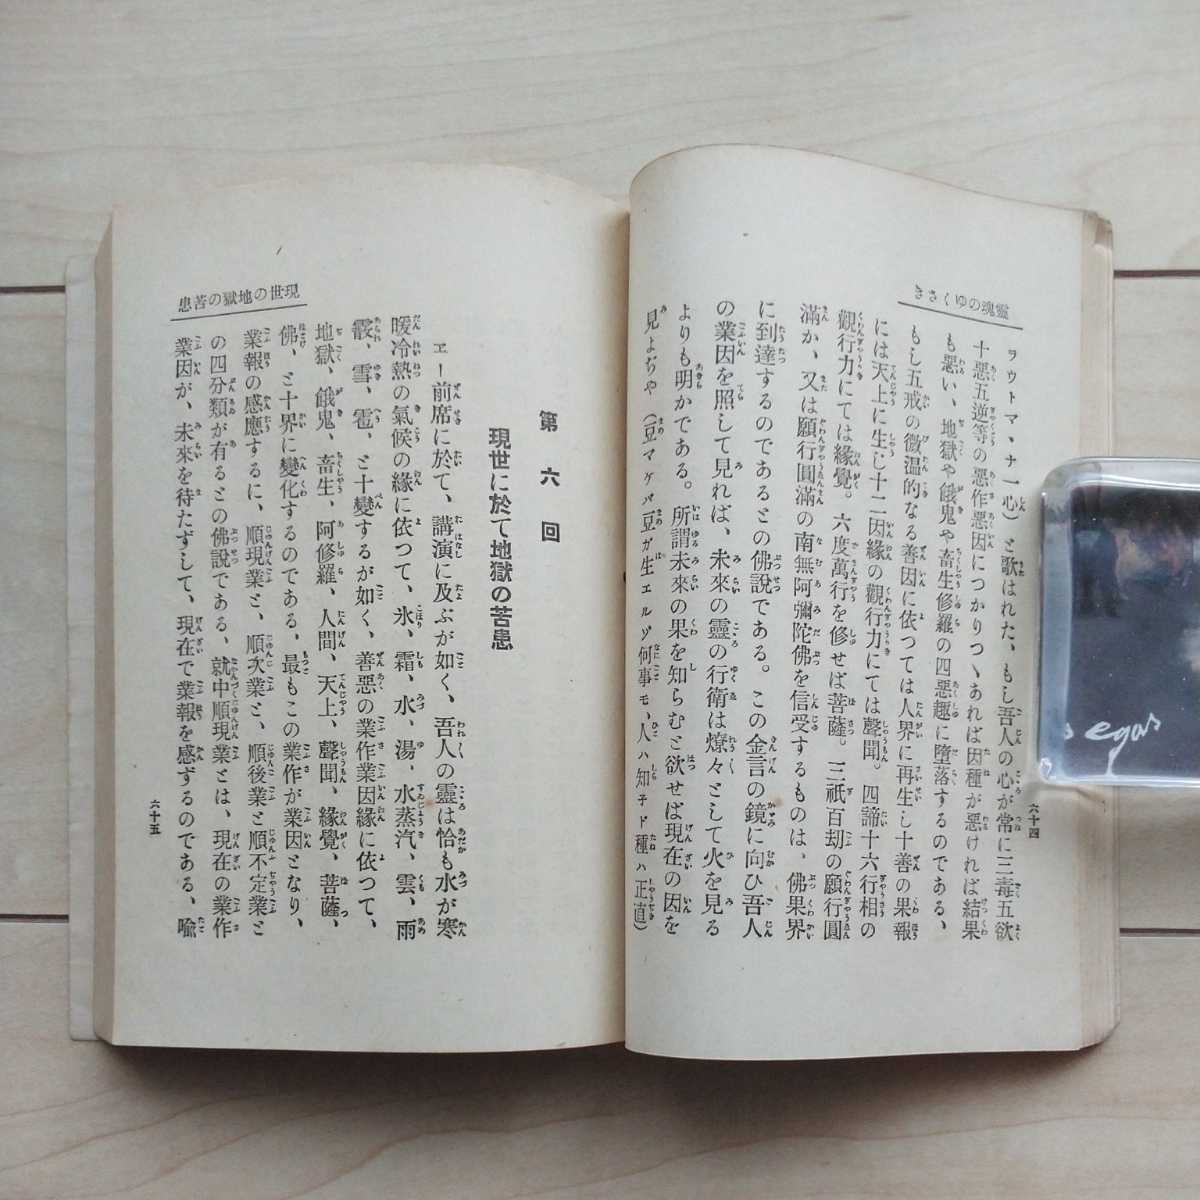 靈魂のゆくさき
ヲウトマヽナ一心)と歌はれた、もし吾人の心が常に三毒五欲
十惡五逆等の惡作惡因につかりつゝあれば因種が惡ければ結果
も惡い、地獄や餓鬼や畜生修羅の四惡趣に墮落するのである、
もし五戒の微温的なる善因に依つては人界に再生し十善の果報
には天上に生じ十二因緣の觀行力にては聲聞。四諦十六行相の
觀行力にては緣覺。六度萬行を修せば菩薩。三祇百劫の願行圓
滿か、又は願行圓滿の南無阿彌陀佛を信受するものは、佛果界
に到達するのであるとの佛說である。この金言の鏡に向ひ吾人
の業因を照して見れば、未來の靈の行衛は燎々として火を見る
よりも明かである。所謂未來の果を知らむと欲せば現在の因を
見よぢや(豆マケバ豆ガ生エルゾ何事モ、人ハ知ラネド種ハ正直)
六十四
現世の地獄の苦患
第六回
現世に於て地獄の苦患
エー前席に於て、講演に及ぶが如く、吾人の靈は恰も水が寒
暖冷熱の氣候の緣に依つて、氷、霜、水、湯、水蒸汽、雲、雨
霰、雪、雹、と十變するが如く、善惡の業作業因緣に依つて、
地獄、餓鬼、畜生、阿修羅、人間、天上、聲聞、緣覺、菩薩、
佛、と十界に變化するのである、最もこの業作が業因となり、
業報の感應するに、順現業と、順次業と、順後業と順不定業と
の四分類が有るとの佛說である、就中順現業とは、現在の業作
業因が、未來を待たずして、現在で業報を感ずるのである、喩
六十五
egas